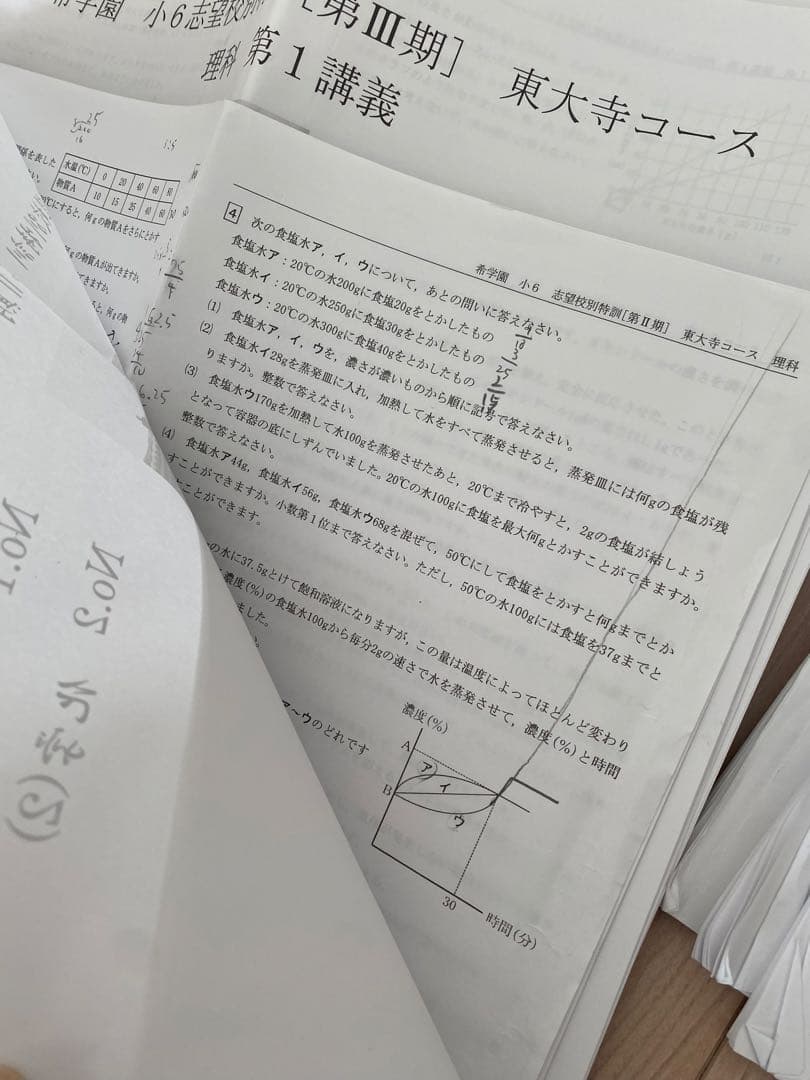 希学園 小6志望校別
[第Ⅲ期] 東大寺コース
理科 第1講義
希学園 小6 志望校別特訓[第Ⅱ期] 東大寺コース 理科
水温(℃) 0 20 40 60 80
物質A 10 15 25 40 60
℃にすると,何gの物質Aをさらにとかす
gの物質Aが出てきますか。
できますか。
ると,何gの物
25
62.5
6.25
4 次の食塩水ア,イ,ウについて,あとの問いに答えなさい。
食塩水ア:20℃の水200gに食塩20gをとかしたもの
食塩水イ:20℃の水250gに食塩30gをとかしたもの
食塩水ウ:20℃の水300gに食塩40gをとかしたもの
(1) 食塩水ア,イ,ウを,濃さが濃いものから順に記号で答えなさい。
(2) 食塩水イ28gを蒸発皿に入れ,加熱して水をすべて蒸発させると,蒸発皿には何gの食塩が残
りますか。整数で答えなさい。
(3) 食塩水ウ170gを加熱して水100gを蒸発させたあと,20℃まで冷やすと,2gの食塩が結しょう
となって容器の底にしずんでいました。20℃の水100gに食塩を最大何gとかすことができますか。
整数で答えなさい。
(4) 食塩水ア44g,食塩水イ56g,食塩水ウ68gを混ぜて,50℃にして食塩をとかすと何gまでとか
すことができますか。小数第1位まで答えなさい。ただし,50℃の水100gには食塩を37gまでと
かすことができます。
の水に37.5gとけて飽和溶液になりますが,この量は温度によってほとんど変わり
濃度(%)の食塩水100gから毎分2gの速さで水を蒸発させて,濃度(%)と時間
ました。
ア〜ウのどれです
濃度(%)
A
ア
イ
B
ウ
30
時間(分)
No.1
No.2